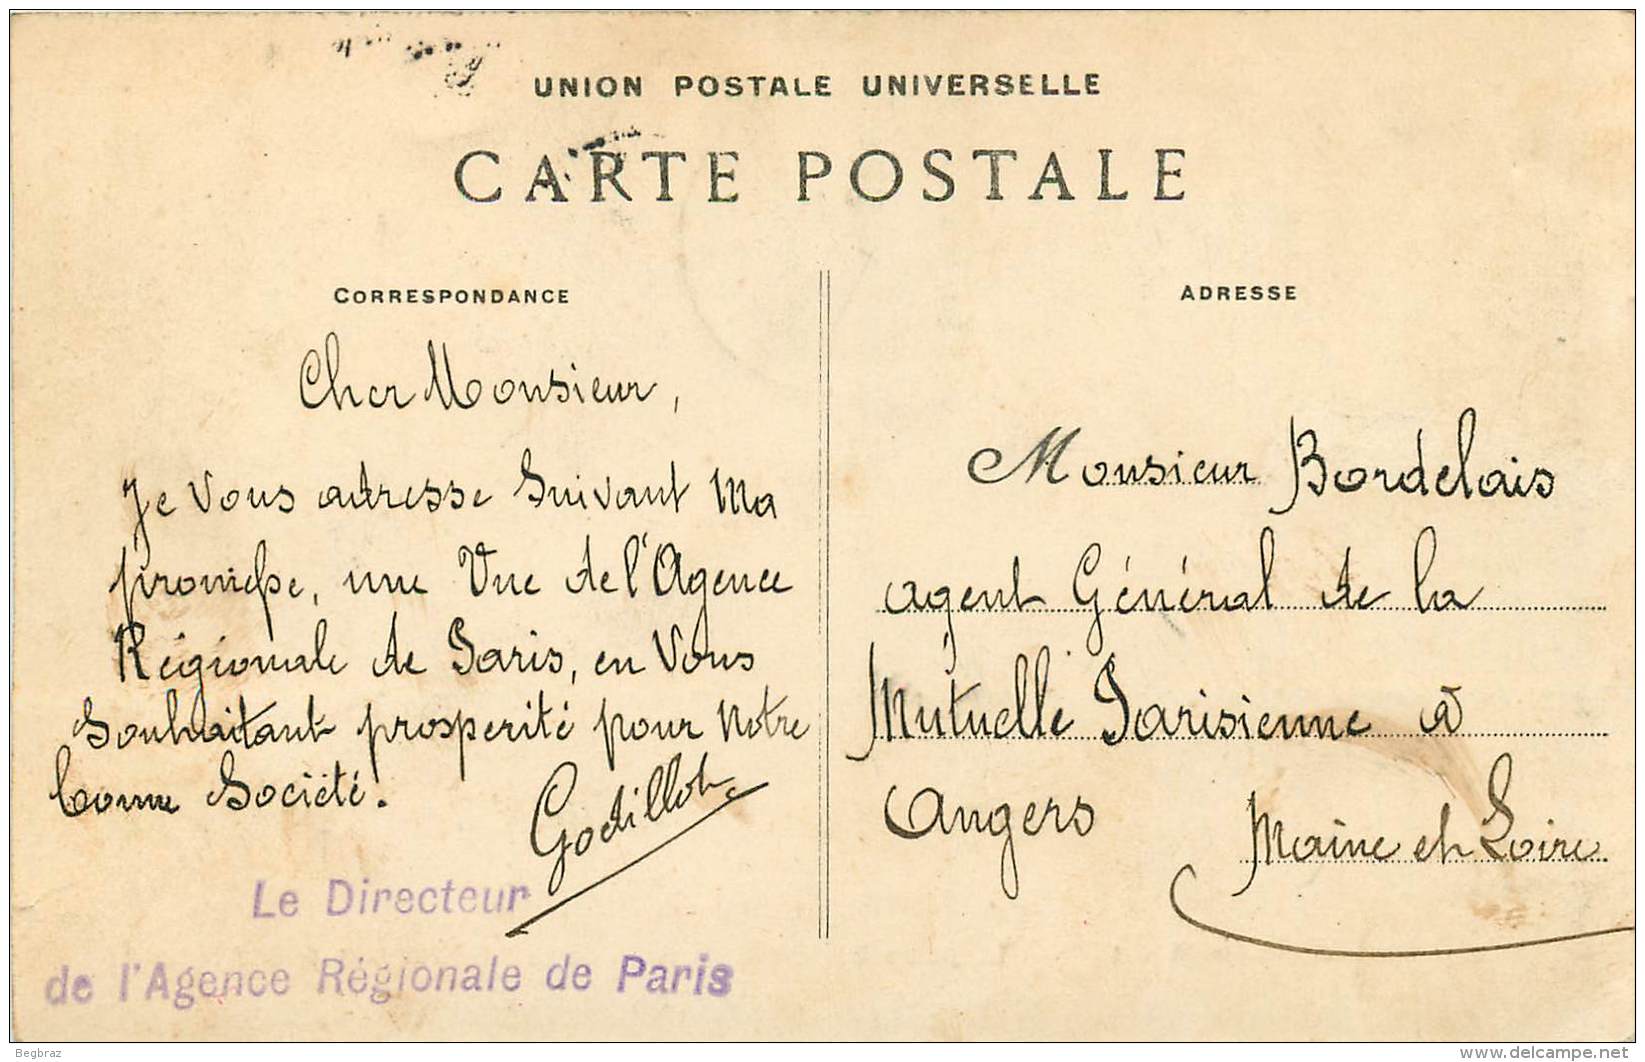 UNION POSTALE UNIVERSELLE
CARTE POSTALE
CORRESPONDANCE
Cher Monsieur,
Je vous adresse suivant ma
promesse, une vue de l'Agence
Régionale de Paris, en vous
souhaitant prosperité pour notre
bonne Société.
Godillot
Le Directeur
de l'Agence Régionale de Paris
ADRESSE
Monsieur Bordelais
agent Général de la
Mutuelle Parisienne à
Angers
Maine et Loire
Begbraz
www.delcampe.net